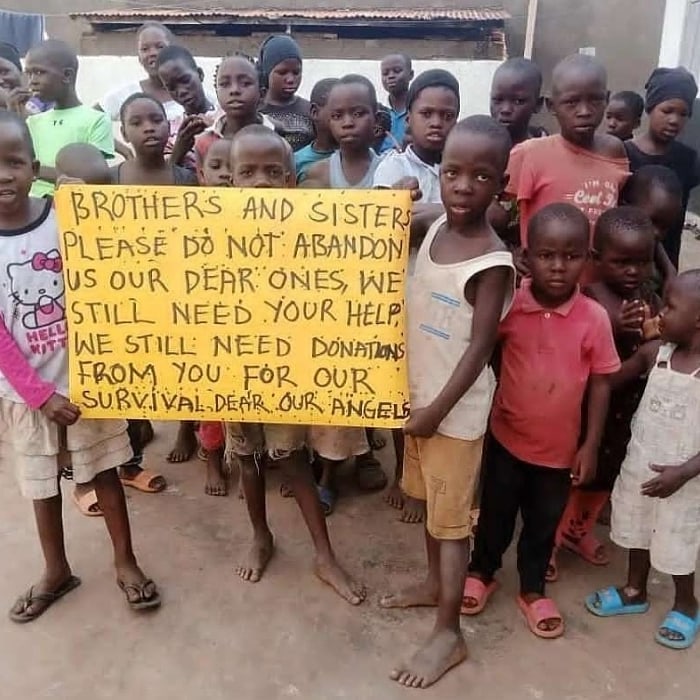 BROTHERS AND SISTERS
PLEASE DO NOT ABANDON
US OUR DEAR ONES, WE
STILL NEED YOUR HELP,
WE STILL NEED DONATIONS
FROM YOU FOR OUR
SURVIVAL DEAR OUR ANGELS
HELLO
KITTY
I'M
Cool